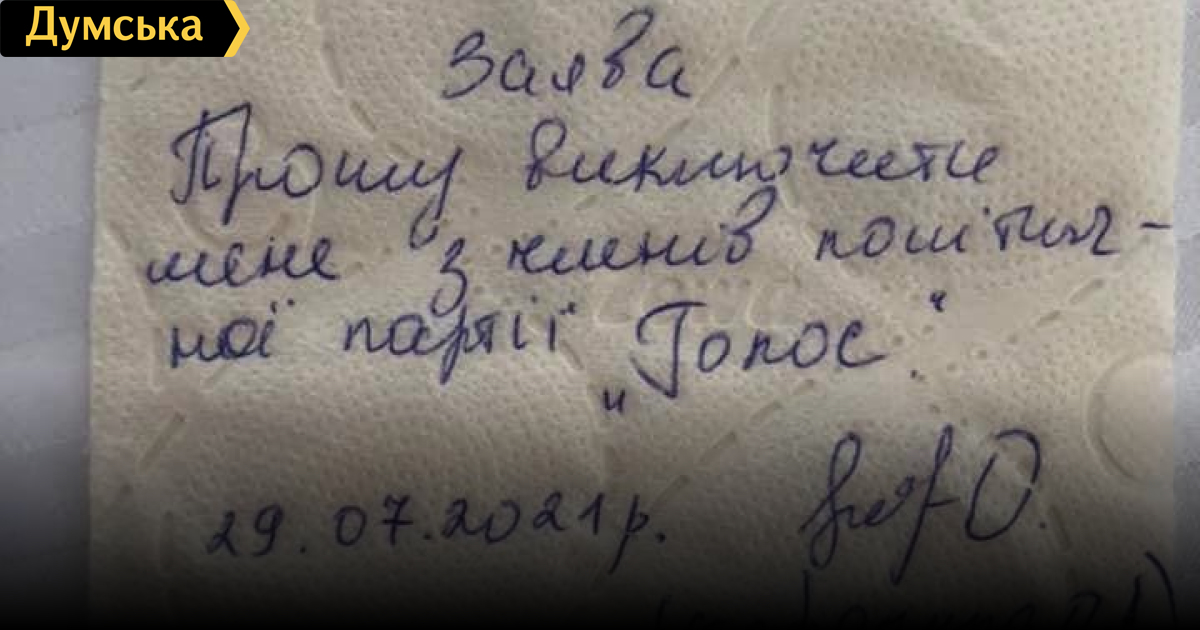 Думська
Заява
Прошу виключити
мене з членів політич-
ної партії „Голос".
29.07.2021р.